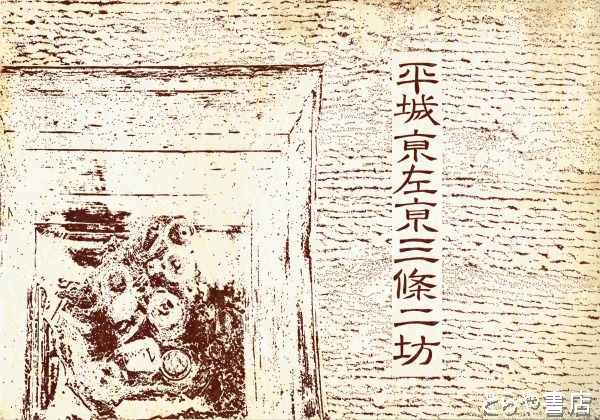 平城京左京三條二坊
とらや書店